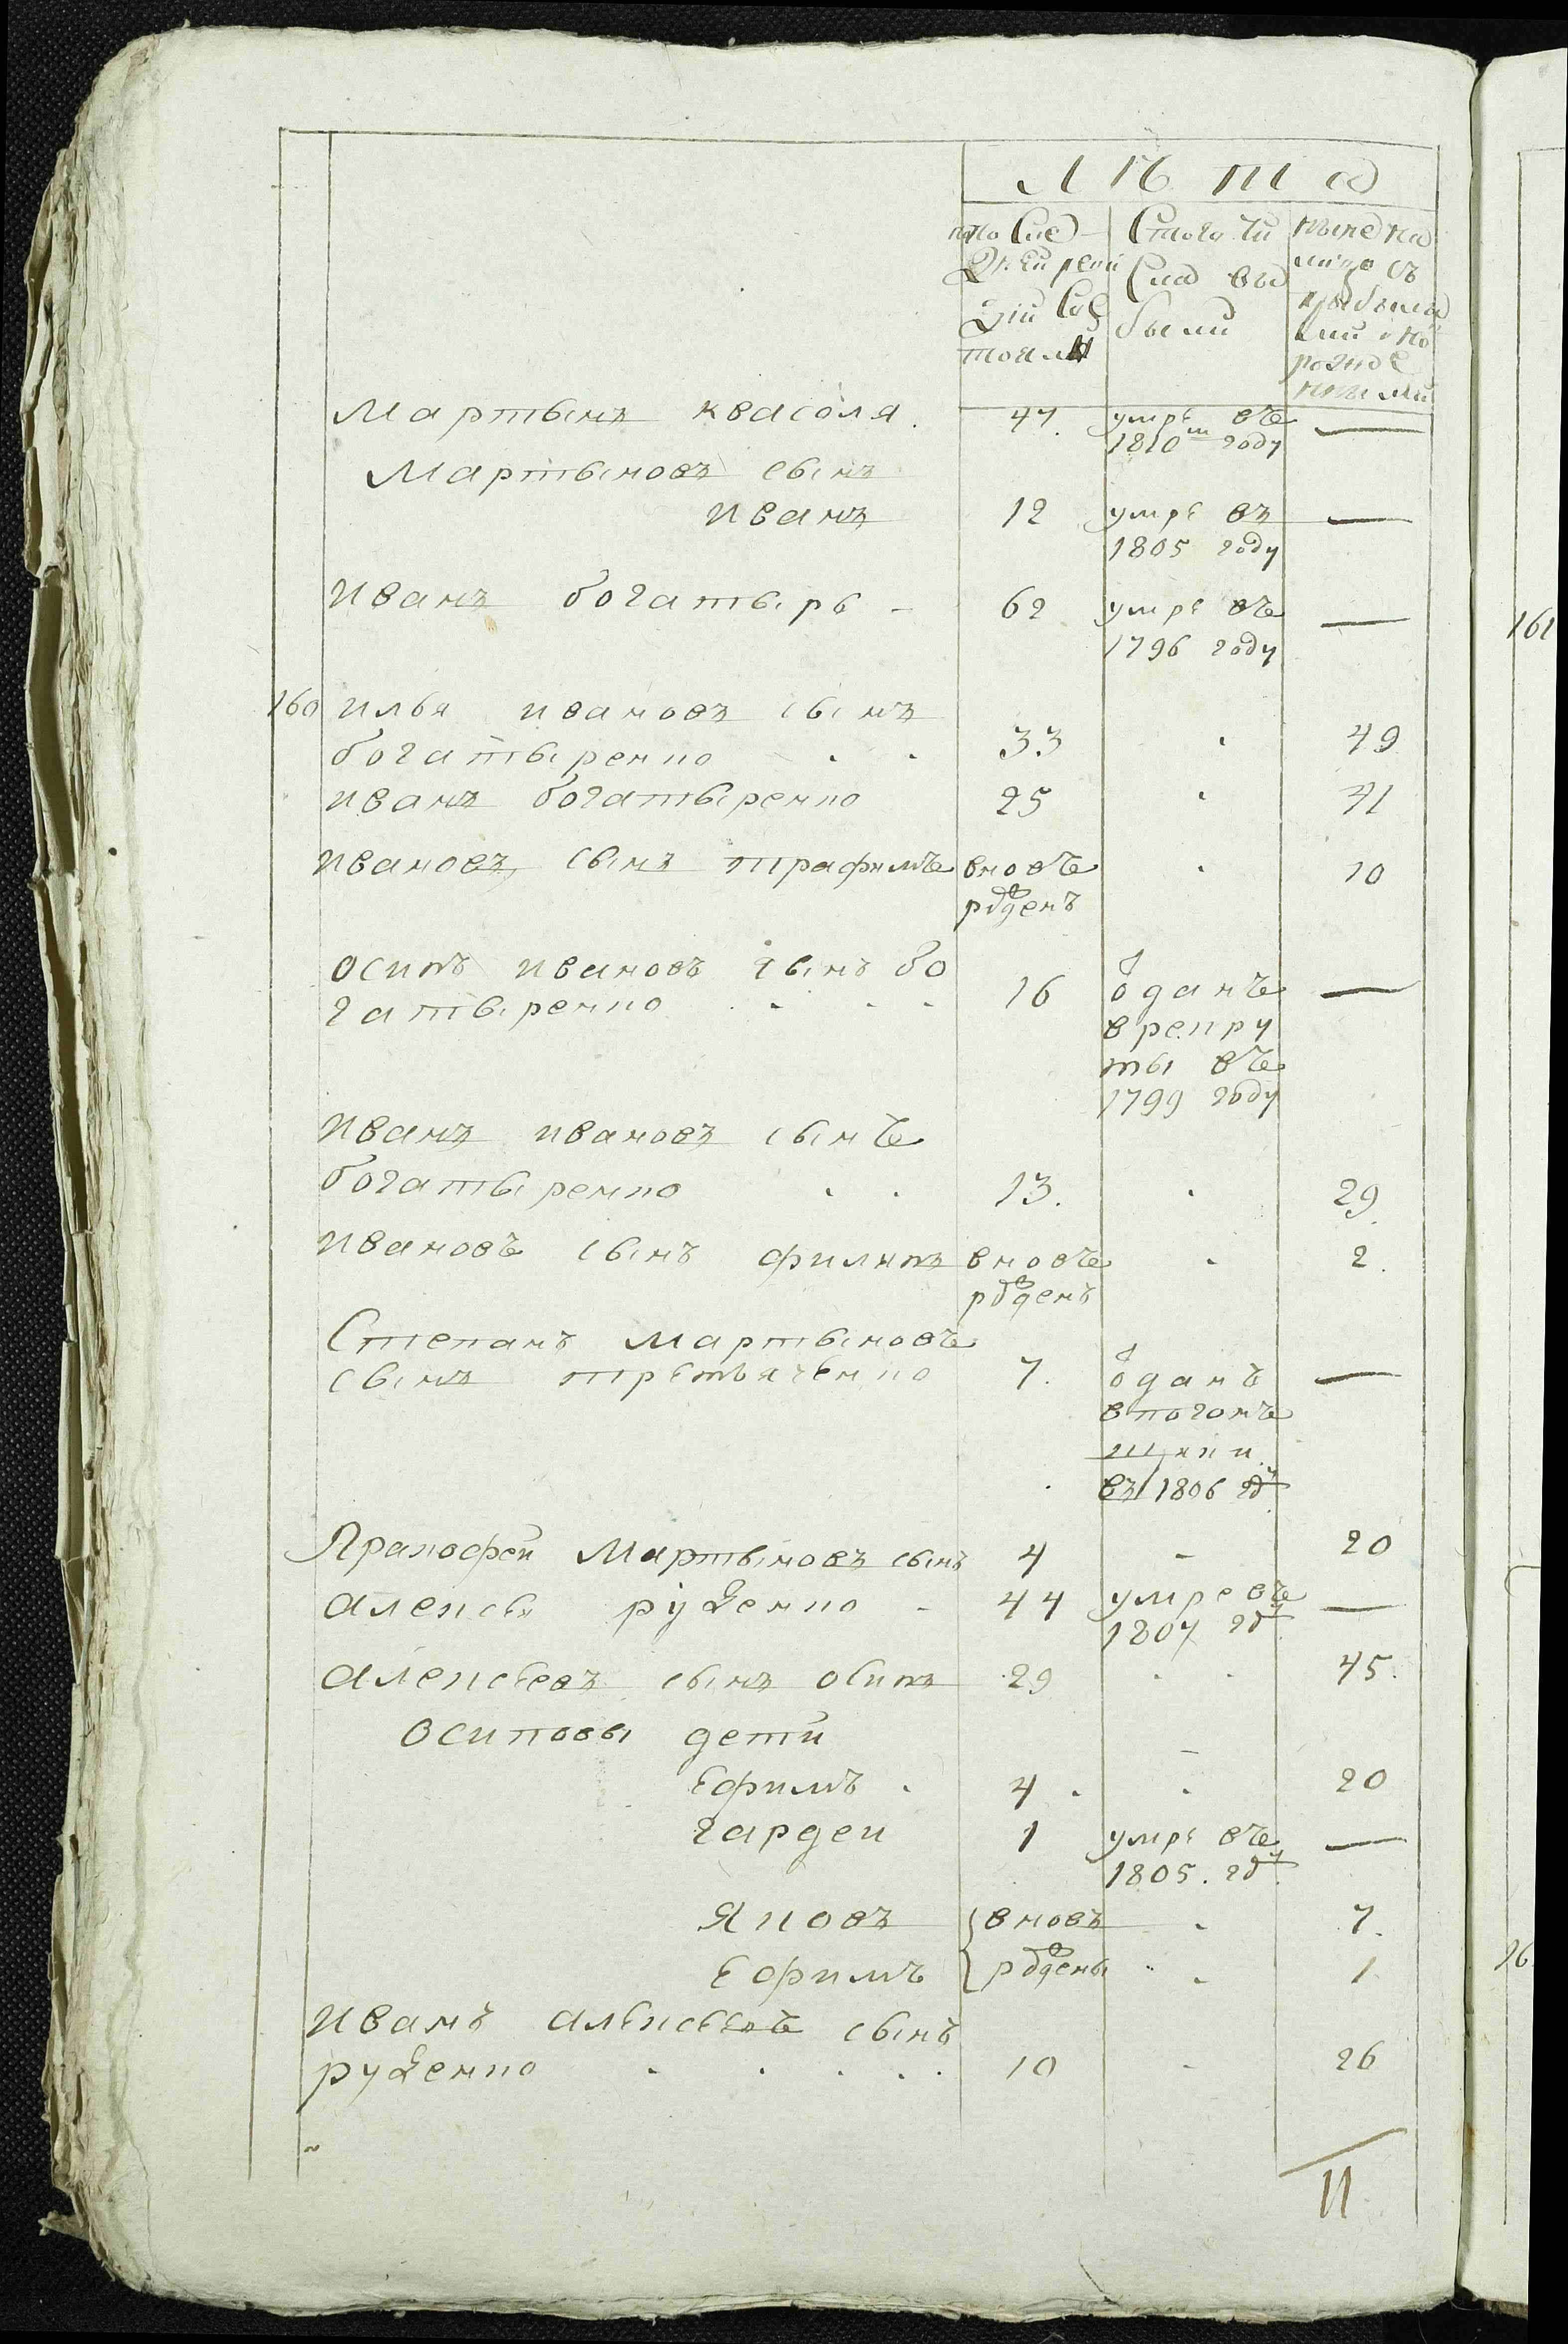 Лѣта
по сие
ревизіи сос
тояли
Стого чи
сла вы
были
ныне на
лицо съ
прибылы
ми и но
рожде
ными
Мартынъ квасоля. 47. умре въ —
1810м году
Мартыновъ сынъ
иванъ 12 умре въ —
1805 году
иванъ богатырь - 62 умре въ —
1796 году
160 илья ивановъ сынъ
богатыренко . . 33 . 49
иванъ богатыренко 25 . 41
ивановъ сынъ трафимъ вновъ . 10
рожденъ
осипъ ивановъ сынъ бо
гатыренко . . . 16 ѿданъ —
врекру
ты въ
1799 году
иванъ ивановъ сынъ
богатыренко . . 13. . 29.
ивановъ сынъ филипъ вновъ . 2.
рожденъ
Степанъ мартыновъ
сынъ третьяченко 7. ѿданъ —
впогонъ
щики
въ 1806 гду
Пракофеи Мартыновъ сынъ 4 - 20
алексѣи руденко - 44 умре въ —
1807 гду
алексѣевъ сынъ осипъ 29 . . 45.
осиповы дети
Ефимъ . 4 . . 20
гардеи 1 умре въ —
1805. гду
Яковъ вновъ . 7.
Ефимъ рождены . 1
иванъ алексѣевъ сынъ
руденко . . . . . 10 - 26
11
161
16